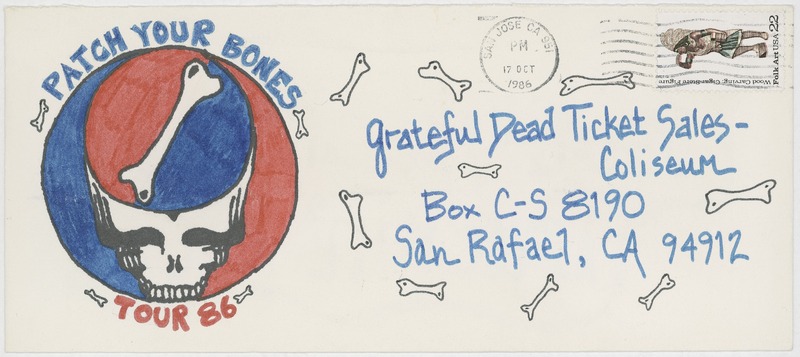 PATCH YOUR BONES
TOUR 86
SAN JOSE CA 951
PM
17 OCT
1986
Wood Carving: Cigar-Store Figure
Folk Art USA 22
Grateful Dead Ticket Sales-
Coliseum
Box C-S 8190
San Rafael, CA 94912